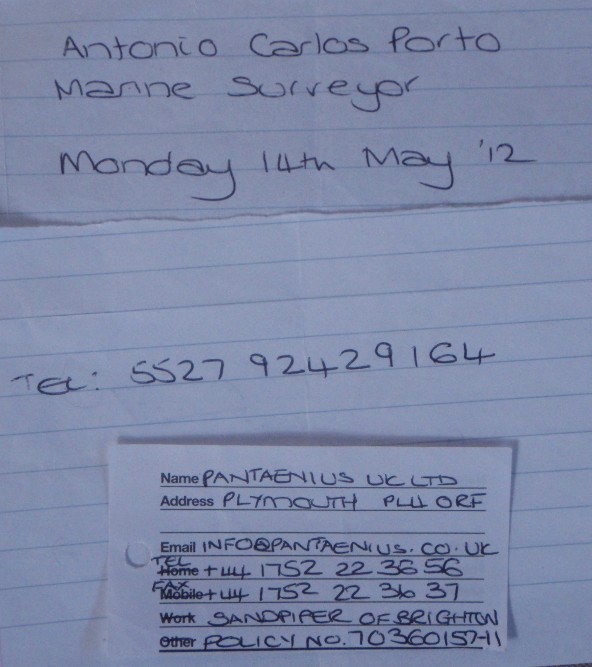 Antonio Carlos Porto
Marine Surveyor
Monday 14th May '12
Tel: 5527 92429164
Name PANTAENIUS UK LTD
Address PLYMOUTH PL4 ORF
Email INFO@PANTAENIUS.CO.UK
TEL
Home +44 1752 22 36 56
FAX
Mobile +44 1752 22 36 37
Work SANDPIPER OF BRIGHTON
Other POLICY NO. 70360157-11